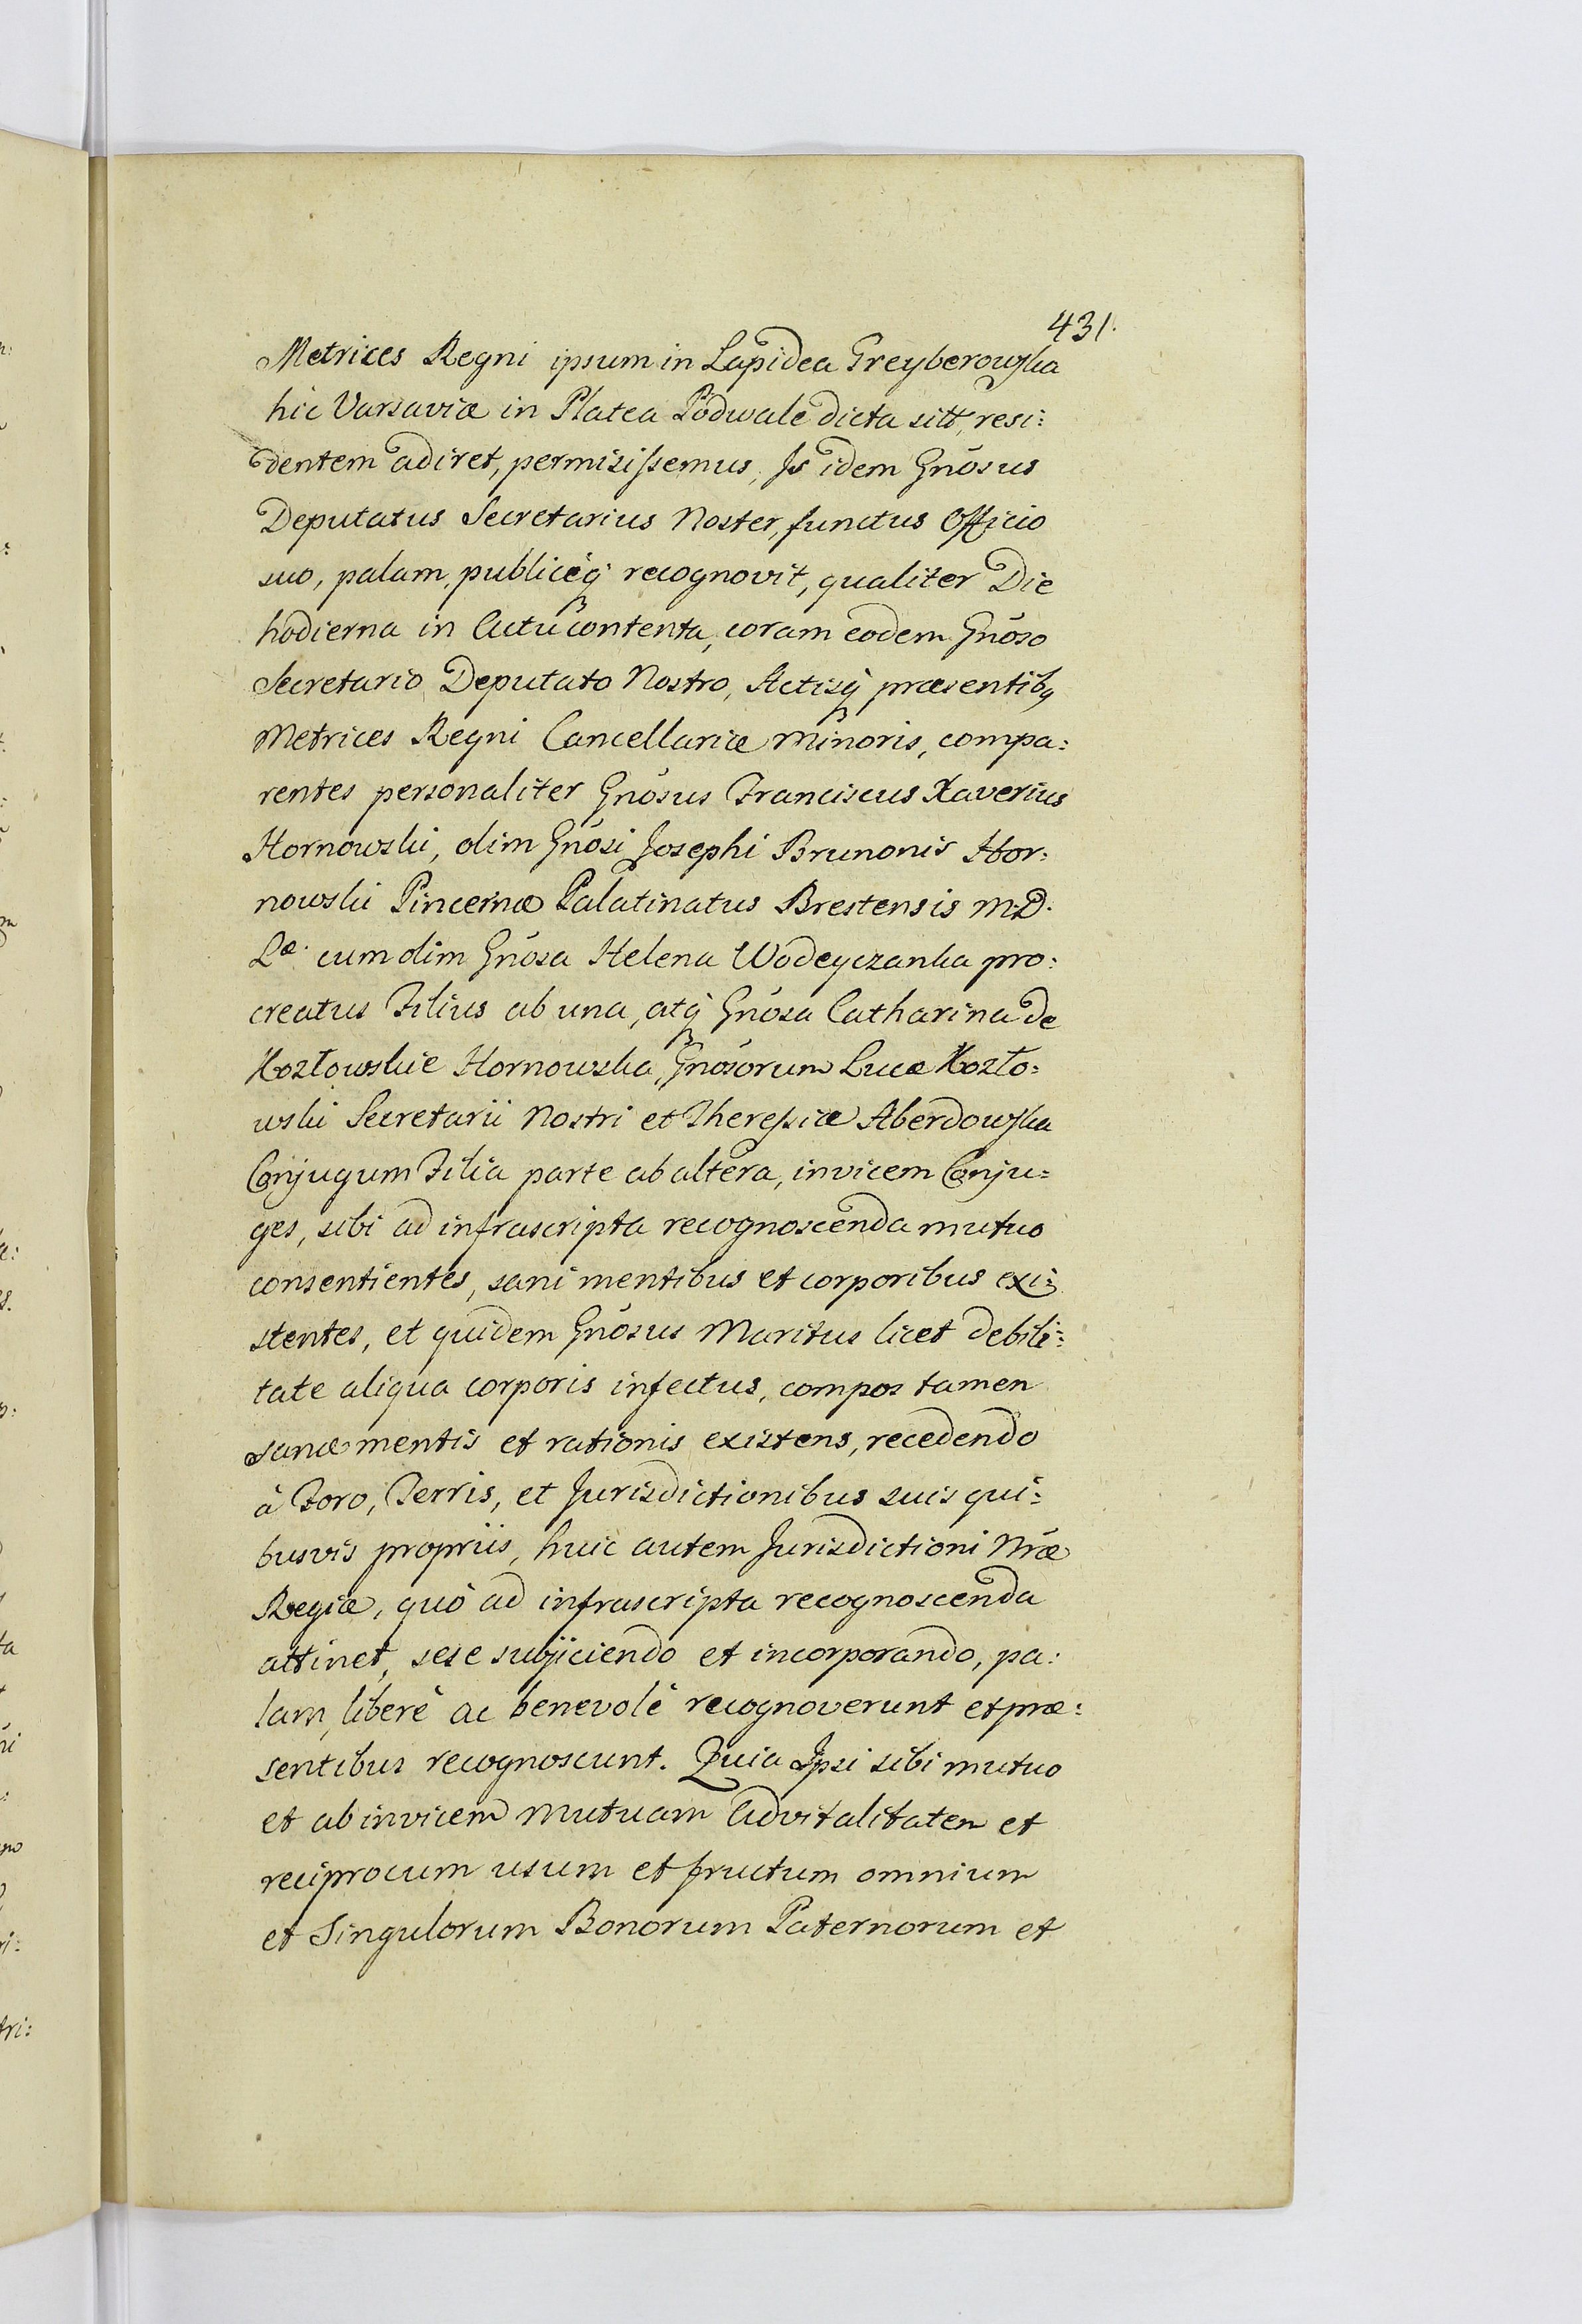 431.
Metrices Regni ipsum in Lapidea Greyberowska
hic Varsaviæ in Platea Podwale dicta sitt, resi:
dentem adiret, permisissemus, Is idem Gnōsus
Deputatus Secretarius Noster, functus Officio
suo, palam, publiceq́ recognovit, qualiter Die
hodierna in Actu contenta, coram eodem Gnōso
Secretario Deputato Nostro, Actisq́ præsentibq
Metrices Regni Cancellariæ Minoris, compa:
rentes personaliter Gnōsus Franciscus Xaverius
Hornowski, olim Gnōsi Josephi Brunonis Hor:
nowski Pincernæ Palatinatus Brestensis M.D.
Læ cum olim Gnōsa Helena Wodeyczanka pro:
creatus Filius ab una, atq́ Gnōsa Catharina de
Kozłowskie Hornowska, Gnōsorum Lucæ Kozło:
wski Secretarii Nostri et Theressiæ Aberdowska
Conjugum Filia parte ab altera, invicem Conju:
ges, sibi ad infrascripta recognoscenda mutuo
consentientes, sani mentibus et corporibus exi:
stentes, et quidem Gnōsus Maritus licet debili:
tate aliqua corporis infectus, compos tamen
sanæ mentis et rationis existens, recedendo
à Foro, Terris, et Jurisdictionibus suis qui:
busvis propriis, huic autem Jurisdictioni Nræ
Regiæ, quò ad infrascripta recognoscenda
attinet, sese subjiciendo et incorporando, pa:
lam, liberè ac benevolè recognoverunt et præ:
sentibus recognoscunt. Quia Ipsi sibi mutuo
et ab invicem mutuam Advitalitatem et
reciprocum usum et fructum omnium
et Singulorum Bonorum Paternorum et